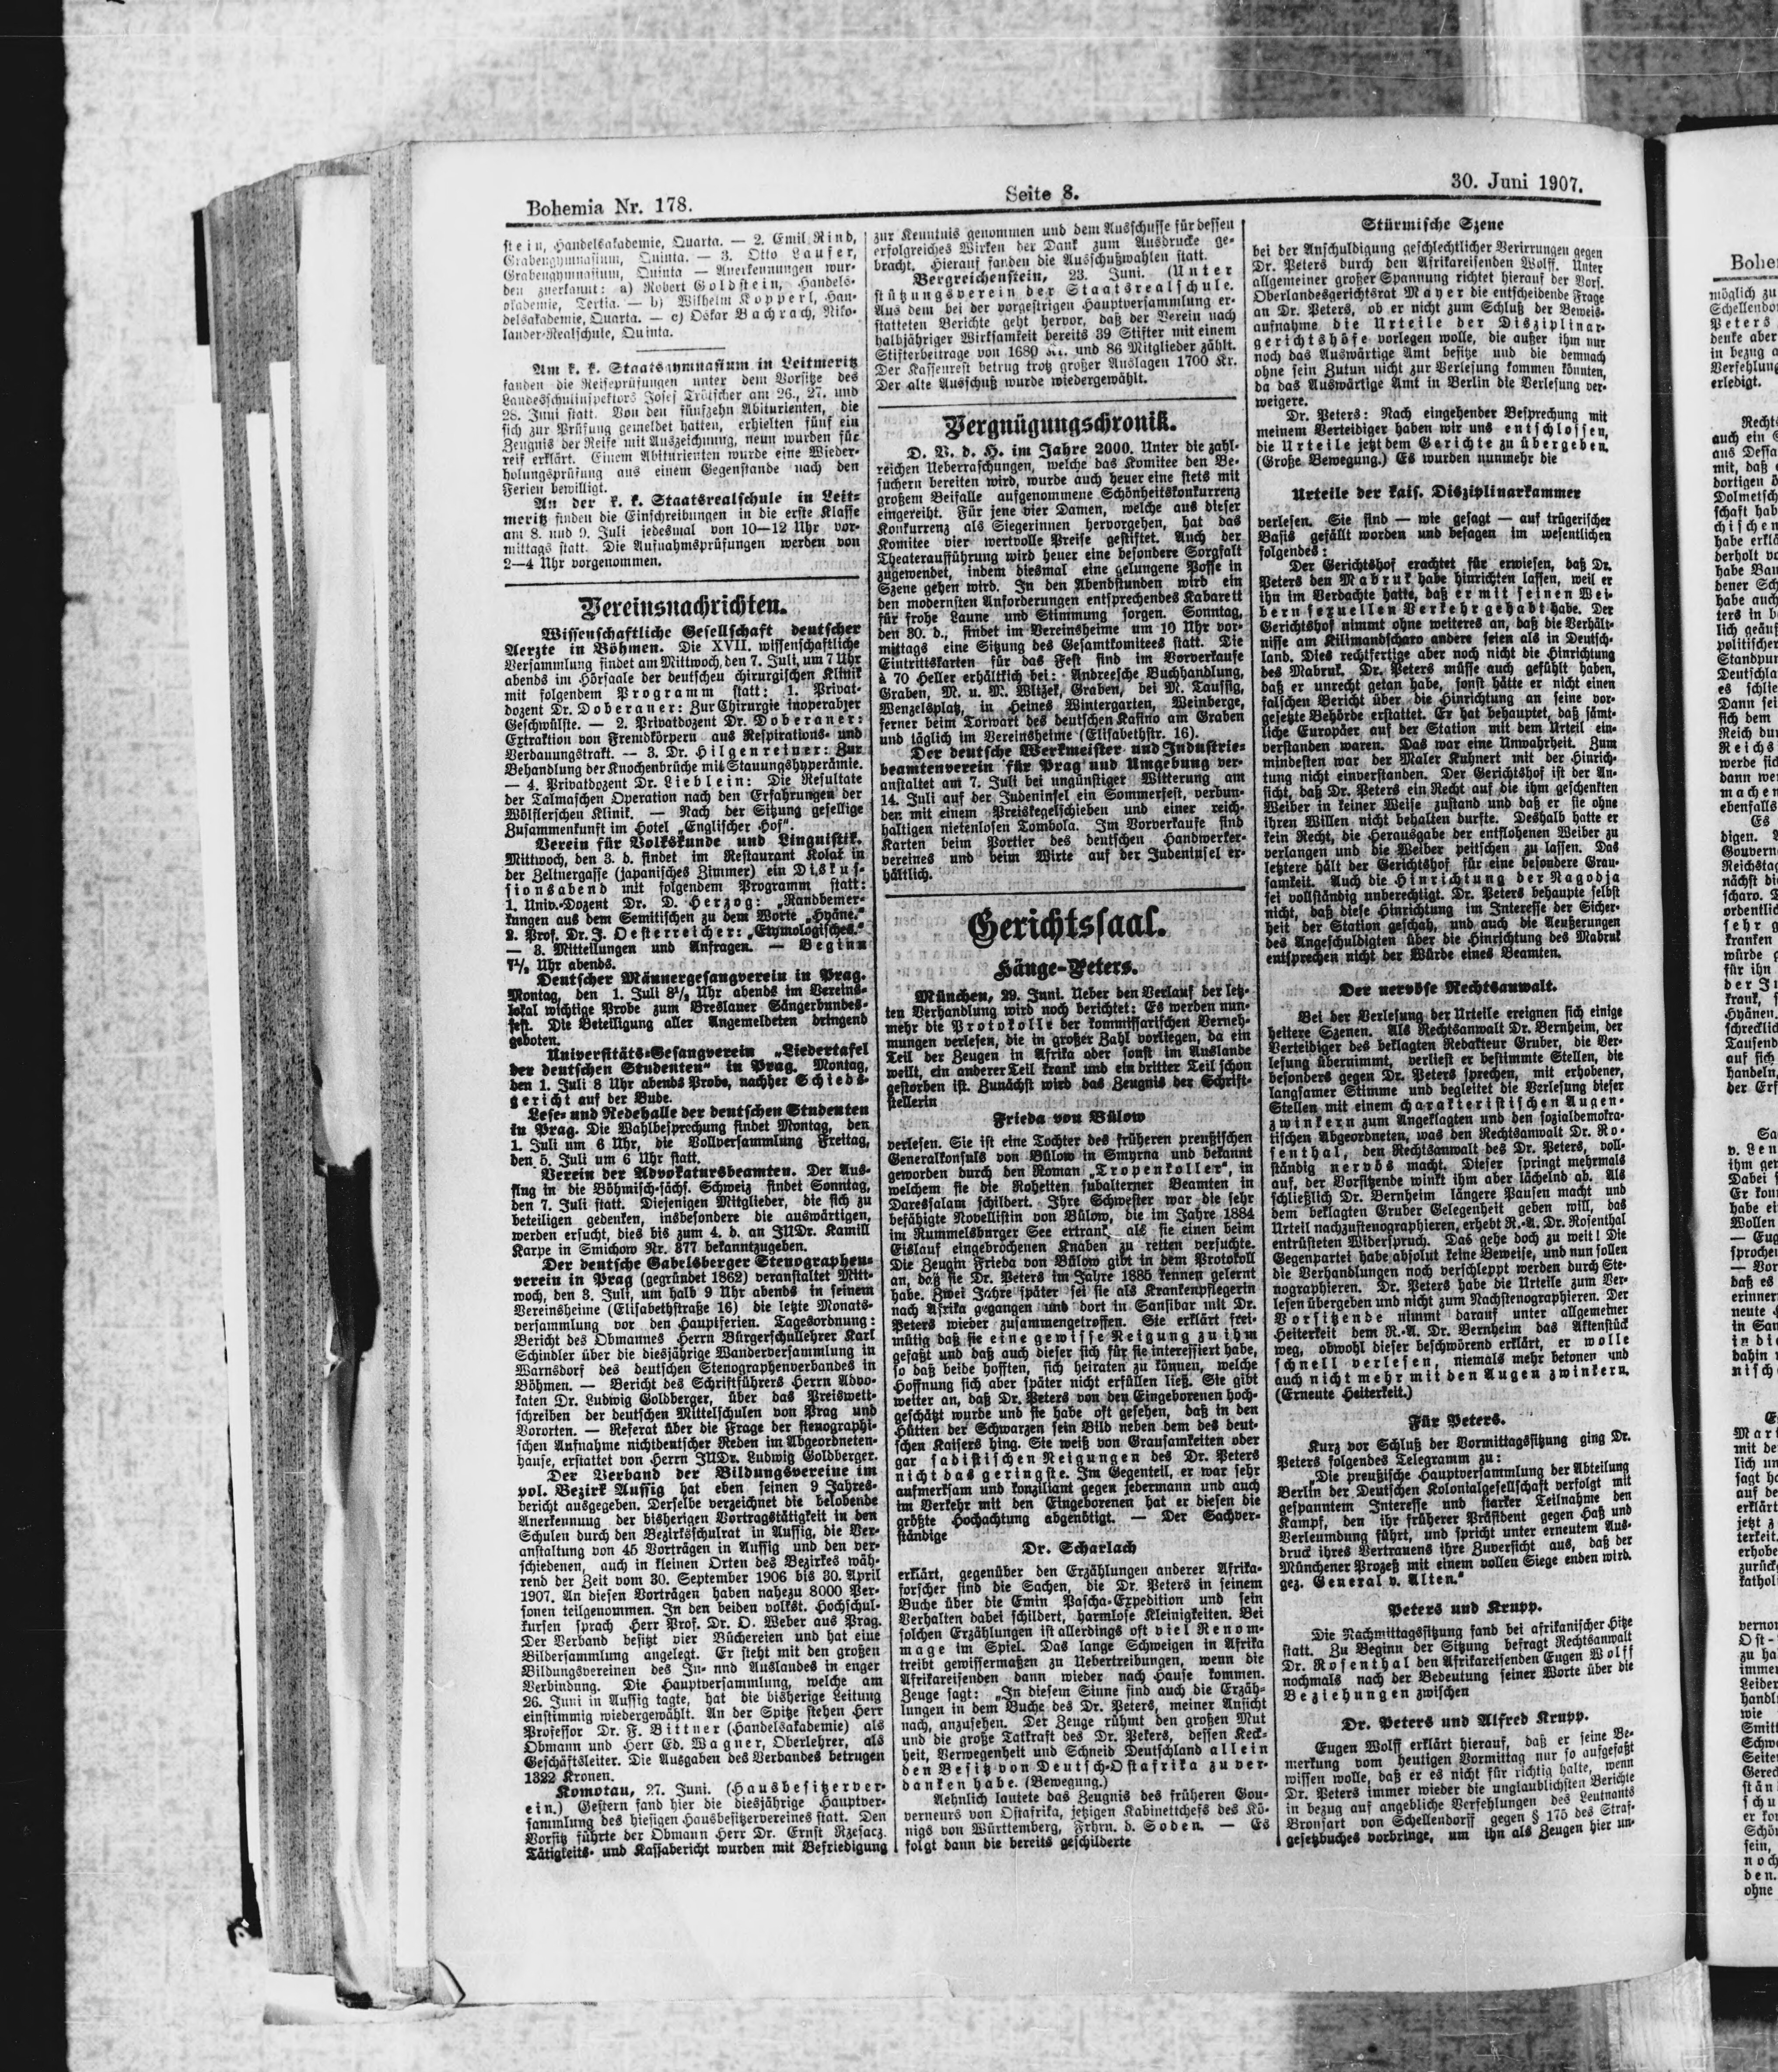 Bohemia Nr. 178.
Seite 8.
30. Juni 1907.
stein, Handelsakademie, Quarta. — 2. Emil Rind,
Grabengymnasium, Quinta. — 3. Otto Laufer,
Grabengymnasium, Quinta — Anerkennungen wur-
den zuerkannt: a) Robert Goldstein, Handels-
akademie, Tertia. — b) Wilhelm Kopperl, Han-
delsakademie, Quarta. — c) Oskar Bachrach, Niko-
lander-Realschule, Quinta.
Am k. k. Staatsgymnasium in Leitmeritz
fanden die Reifeprüfungen unter dem Vorsitze des
Landesschulinspektors Josef Trötscher am 26., 27. und
28. Juni statt. Von den fünfzehn Abiturienten, die
sich zur Prüfung gemeldet hatten, erhielten fünf ein
Zeugnis der Reife mit Auszeichnung, neun wurden für
reif erklärt. Einem Abiturienten wurde eine Wieder-
holungsprüfung aus einem Gegenstande nach den
Ferien bewilligt.
An der k. k. Staatsrealschule in Leit-
meritz finden die Einschreibungen in die erste Klasse
am 8. und 9. Juli jedesmal von 10—12 Uhr vor-
mittags statt. Die Aufnahmsprüfungen werden von
2—4 Uhr vorgenommen.
Vereinsnachrichten.
Wissenschaftliche Gesellschaft deutscher
Aerzte in Böhmen. Die XVII. wissenschaftliche
Versammlung findet am Mittwoch, den 7. Juli, um 7 Uhr
abends im Hörsaale der deutscheu chirurgischen Klinik
mit folgendem Programm statt: 1. Privat-
dozent Dr. Doberaner: Zur Chirurgie inoperabler
Geschwülste. — 2. Privatdozent Dr. Doberaner:
Extraktion von Fremdkörpern aus Respirations- und
Verdauungstrakt. — 3. Dr. Hilgenreiner: Zur
Behandlung der Knochenbrüche mit Stauungshyperämie.
— 4. Privatdozent Dr. Lieblein: Die Resultate
der Talmaschen Operation nach den Erfahrungen der
Wölflerschen Klinik. — Nach der Sitzung gesellige
Zusammenkunft im Hotel „Englischer Hof".
Verein für Volkskunde und Linguistik.
Mittwoch, den 3. d. findet im Restaurant Kolar in
der Zeltnergasse (japanisches Zimmer) ein Diskus-
sionsabend mit folgendem Programm statt:
1. Univ.-Dozent Dr. D. Herzog: „Randbemer-
kungen aus dem Semitischen zu dem Worte „Hyäne."
2. Prof. Dr. J. Oesterreicher: „Etymologisches."
— 3. Mitteilungen und Anfragen. — Beginn
7½ Uhr abends.
Deutscher Männergesangverein in Prag.
Montag, den 1. Juli 8½ Uhr abends im Vereins-
lokal wichtige Probe zum Breslauer Sängerbundes-
fest. Die Beteiligung aller Angemeldeten dringend
geboten.
Universitäts-Gesangverein „Liedertafel
der deutschen Studenten" in Prag. Montag,
den 1. Juli 8 Uhr abends Probe, nachher Schieds-
gericht auf der Bude.
Lese- und Redehalle der deutschen Studenten
in Prag. Die Wahlbesprechung findet Montag, den
1. Juli um 6 Uhr, die Vollversammlung Freitag,
den 5. Juli um 6 Uhr statt.
Verein der Advokatursbeamten. Der Aus-
flug in die Böhmisch-sächs. Schweiz findet Sonntag,
den 7. Juli statt. Diejenigen Mitglieder, die sich zu
beteiligen gedenken, insbesondere die auswärtigen,
werden ersucht, dies bis zum 4. d. an JUDr. Kamill
Karpe in Smichow Nr. 877 bekanntzugeben.
Der deutsche Gabelsberger Stenographen-
verein in Prag (gegründet 1862) veranstaltet Mitt-
woch, den 3. Juli, um halb 9 Uhr abends in seinem
Vereinsheime (Elisabethstraße 16) die letzte Monats-
versammlung vor den Hauptferien. Tagesordnung:
Bericht des Obmannes Herrn Bürgerschullehrer Karl
Schindler über die diesjährige Wanderversammlung in
Warnsdorf des deutschen Stenographenverbandes in
Böhmen. — Bericht des Schriftführers Herrn Advo-
katen Dr. Ludwig Goldberger, über das Preiswett-
schreiben der deutschen Mittelschulen von Prag und
Vororten. — Referat über die Frage der stenographi-
schen Aufnahme nichtdeutscher Reden im Abgeordneten-
hause, erstattet von Herrn JUDr. Ludwig Goldberger.
Der Verband der Bildungsvereine im
pol. Bezirk Aussig hat eben seinen 9 Jahres-
bericht ausgegeben. Derselbe verzeichnet die belobende
Anerkennung der bisherigen Vortragstätigkeit in den
Schulen durch den Bezirksschulrat in Aussig, die Ver-
anstaltung von 45 Vorträgen in Aussig und den ver-
schiedenen, auch in kleinen Orten des Bezirkes wäh-
rend der Zeit vom 30. September 1906 bis 30. April
1907. An diesen Vorträgen haben nahezu 8000 Per-
sonen teilgenommen. In den beiden volkst. Hochschul-
kursen sprach Herr Prof. Dr. O. Weber aus Prag.
Der Verband besitzt vier Büchereien und hat eine
Bildersammlung angelegt. Er steht mit den großen
Bildungsvereinen des In- nnd Auslandes in enger
Verbindung. Die Hauptversammlung, welche am
26. Juni in Aussig tagte, hat die bisherige Leitung
einstimmig wiedergewählt. An der Spitze stehen Herr
Professor Dr. F. Bittner (Handelsakademie) als
Obmann und Herr Ed. Wagner, Oberlehrer, als
Geschäftsleiter. Die Ausgaben des Verbandes betrugen
1322 Kronen.
Komotau, 27. Juni. (Hausbesitzerver-
ein.) Gestern fand hier die diesjährige Hauptver-
sammlung des hiesigen Hausbesitzervereines statt. Den
Vorsitz führte der Obmann Herr Dr. Ernst Rzesacz.
Tätigkeits- und Kassabericht wurden mit Befriedigung
zur Kenntnis genommen und dem Ausschusse für dessen
erfolgreiches Wirken der Dank zum Ausdrucke ge-
bracht. Hierauf fanden die Ausschußwahlen statt.
Bergreichenstein, 23. Juni. (Unter
stützungsverein der Staatsrealschule.
Aus dem bei der vorgestrigen Hauptversammlung er-
statteten Berichte geht hervor, daß der Verein nach
halbjähriger Wirksamkeit bereits 39 Stifter mit einem
Stifterbeitrage von 1680 Kr. und 86 Mitglieder zählt.
Der Kassenrest betrug trotz großer Auslagen 1700 Kr.
Der alte Ausschuß wurde wiedergewählt.
Vergnügungschronik.
D. V. d. H. im Jahre 2000. Unter die zahl-
reichen Ueberraschungen, welche das Komitee den Be-
suchern bereiten wird, wurde auch heuer eine stets mit
großem Beifalle aufgenommene Schönheitskonkurrenz
eingereiht. Für jene vier Damen, welche aus dieser
Konkurrenz als Siegerinnen hervorgehen, hat das
Komitee vier wertvolle Preise gestiftet. Auch der
Theateraufführung wird heuer eine besondere Sorgfalt
zugewendet, indem diesmal eine gelungene Posse in
Szene gehen wird. In den Abendstunden wird ein
den modernsten Anforderungen entsprechendes Kabarett
für frohe Laune und Stimmung sorgen. Sonntag,
den 30. d., findet im Vereinsheime um 10 Uhr vor-
mittags eine Sitzung des Gesamtkomitees statt. Die
Eintrittskarten für das Fest sind im Vorverkaufe
à 70 Heller erhältlich bei: Andreesche Buchhandlung,
Graben, M. u. M. Wltzek, Graben, bei M. Taussig,
Wenzelsplatz, in Heines Wintergarten, Weinberge,
ferner beim Torwart des deutschen Kasino am Graben
und täglich im Vereinsheime (Elisabethstr. 16).
Der deutsche Werkmeister- und Industrie-
beamtenverein für Prag und Umgebung ver-
anstaltet am 7. Juli bei ungünstiger Witterung am
14. Juli auf der Judeninsel ein Sommerfest, verbun-
den mit einem Preiskegelschieben und einer reich-
haltigen nietenlosen Tombola. Im Vorverkaufe sind
Karten beim Portier des deutschen Handwerker-
vereines und beim Wirte auf der Judeninsel er-
hältlich.
Gerichtssaal.
Hänge-Peters.
München, 29. Juni. Ueber den Verlauf der letz-
ten Verhandlung wird noch berichtet: Es werden nun-
mehr die Protokolle der kommissarischen Verneh-
mungen verlesen, die in großer Zahl vorliegen, da ein
Teil der Zeugen in Afrika oder sonst im Auslande
weilt, ein anderer Teil krank und ein dritter Teil schon
gestorben ist. Zunächst wird das Zeugnis der Schrift-
stellerin
Frieda von Bülow
verlesen. Sie ist eine Tochter des früheren preußischen
Generalkonsuls von Bülow in Smyrna und bekannt
geworden durch den Roman „Tropenkoller", in
welchem sie die Roheiten subalterner Beamten in
Daressalam schildert. Ihre Schwester war die sehr
befähigte Novellistin von Bülow, die im Jahre 1884
im Rummelsburger See ertrank, als sie einen beim
Eislauf eingebrochenen Knaben zu retten versuchte.
Die Zeugin Frieda von Bülow gibt in dem Protokoll
an, daß sie Dr. Peters im Jahre 1885 kennen gelernt
habe. Zwei Jahre später sei sie als Krankenpflegerin
nach Afrika gegangen und dort in Sansibar mit Dr.
Peters wieder zusammengetroffen. Sie erklärt frei-
mütig daß sie eine gewisse Neigung zu ihm
gefaßt und daß auch dieser sich für sie interessiert habe,
so daß beide hofften, sich heiraten zu können, welche
Hoffnung sich aber später nicht erfüllen ließ. Sie gibt
weiter an, daß Dr. Peters von den Eingeborenen hoch-
geschätzt wurde und sie habe oft gesehen, daß in den
Hütten der Schwarzen sein Bild neben dem des deut-
schen Kaisers hing. Sie weiß von Grausamkeiten oder
gar sadistischen Neigungen des Dr. Peters
nicht das geringste. Im Gegenteil, er war sehr
aufmerksam und konziliant gegen jedermann und auch
im Verkehr mit den Eingeborenen hat er diesen die
größte Hochachtung abgenötigt. — Der Sachver-
ständige
Dr. Scharlach
erklärt, gegenüber den Erzählungen anderer Afrika-
forscher sind die Sachen, die Dr. Peters in seinem
Buche über die Emin Pascha-Expedition und sein
Verhalten dabei schildert, harmlose Kleinigkeiten. Bei
solchen Erzählungen ist allerdings oft viel Renom-
mage im Spiel. Das lange Schweigen in Afrika
treibt gewissermaßen zu Uebertreibungen, wenn die
Afrikareisenden dann wieder nach Hause kommen.
Zeuge sagt: „In diesem Sinne sind auch die Erzäh-
lungen in dem Buche des Dr. Peters, meiner Ansicht
nach, anzusehen. Der Zeuge rühmt den großen Mut
und die große Tatkraft des Dr. Peters, dessen Keck-
heit, Verwegenheit und Schneid Deutschland allein
den Besitz von Deutsch-Ostafrika zu ver-
danken habe. (Bewegung.)
Aehnlich lautete das Zeugnis des früheren Gou-
verneurs von Ostafrika, jetzigen Kabinettchefs des Kö-
nigs von Württemberg, Frhrn. v. Soden. — Es
folgt dann die bereits geschilderte
Stürmische Szene
bei der Anschuldigung geschlechtlicher Verirrungen gegen
Dr. Peters durch den Afrikareisenden Wolff. Unter
allgemeiner großer Spannung richtet hierauf der Vors.
Oberlandesgerichtsrat Mayer die entscheidende Frage
an Dr. Peters, ob er nicht zum Schluß der Beweis-
aufnahme die Urteile der Disziplinar-
gerichtshöfe vorlegen wolle, die außer ihm nur
noch das Auswärtige Amt besitze und die demnach
ohne sein Zutun nicht zur Verlesung kommen könnten,
da das Auswärtige Amt in Berlin die Verlesung ver-
weigere.
Dr. Peters: Nach eingehender Besprechung mit
meinem Verteidiger haben wir uns entschlossen,
die Urteile jetzt dem Gerichte zu übergeben.
(Große Bewegung.) Es wurden nunmehr die
Urteile der kais. Disziplinarkammer
verlesen. Sie sind — wie gesagt — auf trügerischer
Basis gefällt worden und besagen im wesentlichen
folgendes:
Der Gerichtshof erachtet für erwiesen, daß Dr.
Peters den Mabruk habe hinrichten lassen, weil er
ihn im Verdachte hatte, daß er mit seinen Wei-
bern sexuellen Verkehr gehabt habe. Der
Gerichtshof nimmt ohne weiteres an, daß die Verhält-
nisse am Kilimandscharo andere seien als in Deutsch-
land. Dies rechtfertige aber noch nicht die Hinrichtung
des Mabruk. Dr. Peters müsse auch gefühlt haben,
daß er unrecht getan habe, sonst hätte er nicht einen
falschen Bericht über die Hinrichtung an seine vor-
gesetzte Behörde erstattet. Er hat behauptet, daß sämt-
liche Europäer auf der Station mit dem Urteil ein-
verstanden waren. Das war eine Unwahrheit. Zum
mindesten war der Maler Kuhnert mit der Hinrich-
tung nicht einverstanden. Der Gerichtshof ist der An-
sicht, daß Dr. Peters ein Recht auf die ihm geschenkten
Weiber in keiner Weise zustand und daß er sie ohne
ihren Willen nicht behalten durfte. Deshalb hatte er
kein Recht, die Herausgabe der entflohenen Weiber zu
verlangen und die Weiber peitschen zu lassen. Das
letztere hält der Gerichtshof für eine besondere Grau-
samkeit. Auch die Hinrichtung der Jagodja
sei vollständig unberechtigt. Dr. Peters behaupte selbst
nicht, daß diese Hinrichtung im Interesse der Sicher-
heit der Station geschah, und auch die Aeußerungen
des Angeschuldigten über die Hinrichtung des Mabruk
entsprechen nicht der Würde eines Beamten.
Der nervöse Rechtsanwalt.
Bei der Verlesung der Urteile ereignen sich einige
heitere Szenen. Als Rechtsanwalt Dr. Bernheim, der
Verteidiger des beklagten Redakteur Gruber, die Ver-
lesung übernimmt, verliest er bestimmte Stellen, die
besonders gegen Dr. Peters sprechen, mit erhobener,
langsamer Stimme und begleitet die Verlesung dieser
Stellen mit einem charakteristischen Augen-
zwinkern zum Angeklagten und den sozialdemokra-
tischen Abgeordneten, was den Rechtsanwalt Dr. Ro-
senthal, den Rechtsanwalt des Dr. Peters, voll-
ständig nervös macht. Dieser springt mehrmals
auf, der Vorsitzende winkt ihm aber lächelnd ab. Als
schließlich Dr. Bernheim längere Pausen macht und
dem beklagten Gruber Gelegenheit geben will, das
Urteil nachzustenographieren, erhebt R.-A. Dr. Rosenthal
entrüsteten Widerspruch. Das gehe doch zu weit! Die
Gegenpartei habe absolut keine Beweise, und nun sollen
die Verhandlungen noch verschleppt werden durch Ste-
nographieren. Dr. Peters habe die Urteile zum Ver-
lesen übergeben und nicht zum Nachstenographieren. Der
Vorsitzende nimmt darauf unter allgemeiner
Heiterkeit dem R.-A. Dr. Bernheim das Aktenstück
weg, obwohl dieser beschwörend erklärt, er wolle
schnell verlesen, niemals mehr betonen und
auch nicht mehr mit den Augen zwinkern.
(Erneute Heiterkeit.)
Für Peters.
Kurz vor Schluß der Vormittagssitzung ging Dr.
Peters folgendes Telegramm zu:
„Die preußische Hauptversammlung der Abteilung
Berlin der Deutschen Kolonialgesellschaft verfolgt mit
gespanntem Interesse und starker Teilnahme den
Kampf, den ihr früherer Präsident gegen Haß und
Verleumdung führt, und spricht unter erneutem Aus-
druck ihres Vertrauens ihre Zuversicht aus, daß der
Münchener Prozeß mit einem vollen Siege enden wird.
gez. General v. Alten."
Peters und Krupp.
Die Nachmittagssitzung fand bei afrikanischer Hitze
statt. Zu Beginn der Sitzung befragt Rechtsanwalt
Dr. Rosenthal den Afrikareisenden Eugen Wolff
nochmals nach der Bedeutung seiner Worte über die
Beziehungen zwischen
Dr. Peters und Alfred Krupp.
Eugen Wolff erklärt hierauf, daß er seine Be-
merkung vom heutigen Vormittag nur so aufgefaßt
wissen wolle, daß er es nicht für richtig halte, wenn
Dr. Peters immer wieder die unglaublichsten Berichte
in bezug auf angebliche Verfehlungen des Leutnants
Bronsart von Schellendorff gegen § 175 des Straf-
gesetzbuches vorbringe, um ihn als Zeugen hier un-